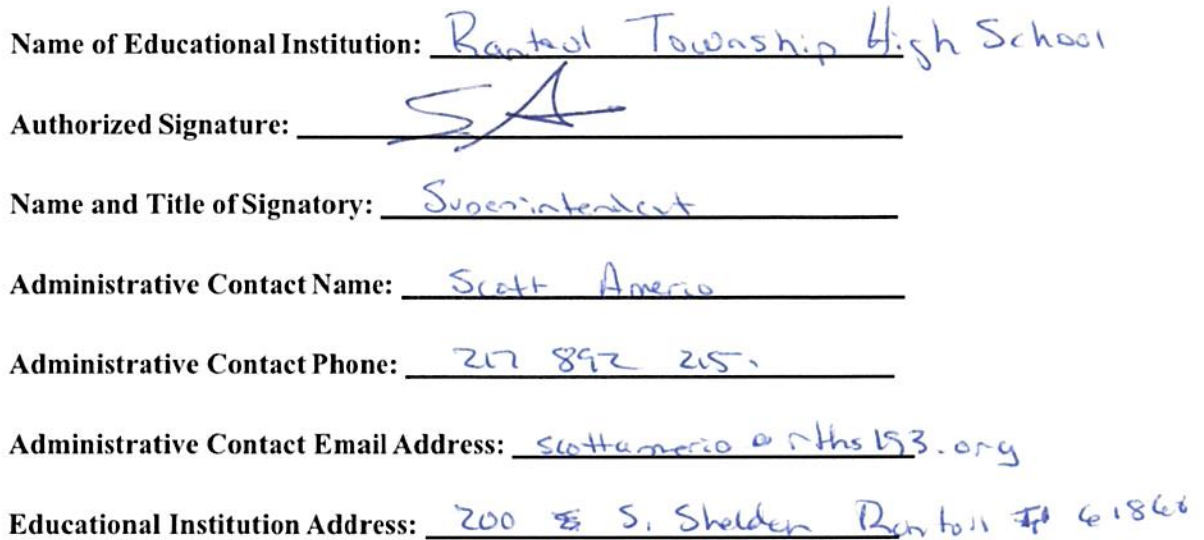 Name of Educational Institution: Rantoul Township High School
Authorized Signature: SA
Name and Title of Signatory: Superintendent
Administrative Contact Name: Scott Amerio
Administrative Contact Phone: 217 892 215
Administrative Contact Email Address: scottamerio@rths193.org
Educational Institution Address: 200 S. Sheldon Rantoul IL 61866